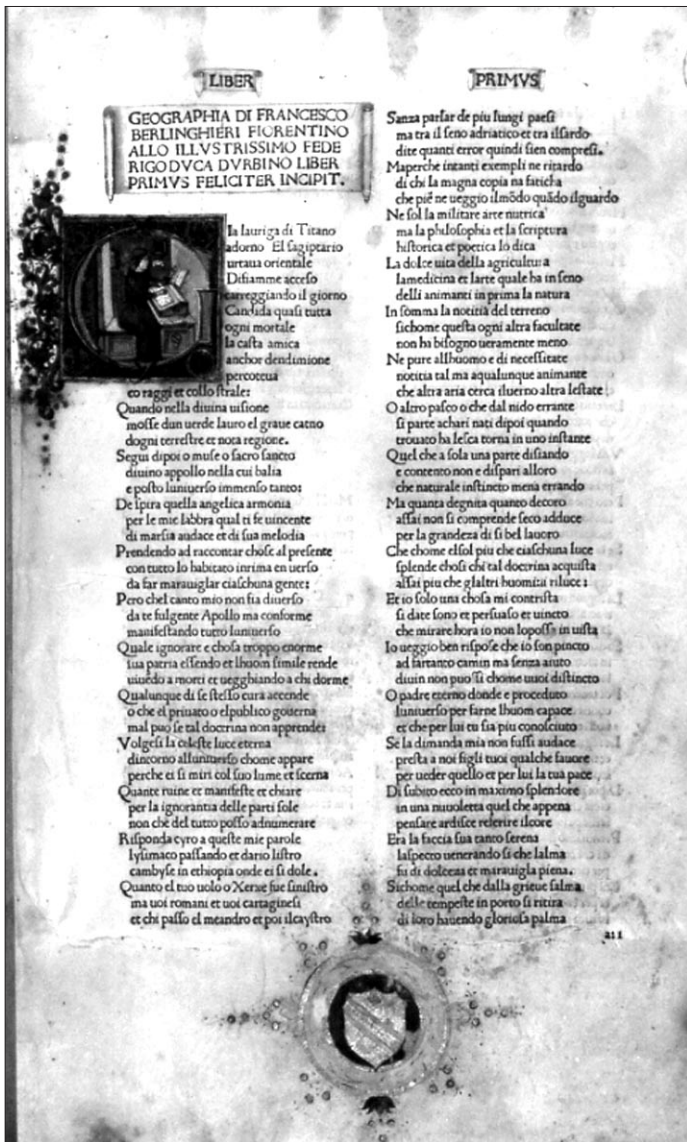 LIBER
PRIMVS
GEOGRAPHIA DI FRANCESCO
BERLINGHIERI FIORENTINO
ALLO ILLVSTRISSIMO FEDE
RIGO DVCA DVRBINO LIBER
PRIMVS FELICITER INCIPIT.
ia lauriga di Titano
adorno El sagiptario
urtaua orientale
Difiamme acceso
carreggiando il giorno
Candida quasi tutta
ogni mortale
la casta amica
anchor dendimione
percoteua
co raggi et collo strale:
Quando nella diuina uisione
mosse dun uerde lauro el graue catno
dogni terrestre et nota regione.
Segui dipoi o muse o sacro sancto
diuino appollo nella cui balia
e posto luniuerso immenso tanto:
De spira quella angelica armonia
per le mie labbra qual ti fe uincente
di marsia audace et di sua melodia
Prendendo ad raccontar chose al presente
con tutto lo habitato inrima en uerso
da far marauiglar ciaschuna gente:
Pero chel canto mio non sia diuerso
da te fulgente Apollo ma conforme
manifestando tutto luniuerso
Quale ignorare e chosa troppo enorme
sua patria essendo et lhuom simile rende
uiuēdo a morti et uegghiando a chi dorme
Qualunque di se stesso cura accende
o che el priuato o elpublico gouerna
mal puo se tal doctrina non apprende:
Volgesi la celeste luce eterna
dintorno alluniuerso chome appare
perche ei si miri col suo lume et scerna
Quante ruine et manifeste et chiare
per la ignorantia delle parti sole
non che del tutto posso adnumerare
Risponda cyro a queste mie parole
lysimaco passando et dario listro
cambyse in ethiopia onde ei si dole.
Quanto el tuo uolo o Xerxe fue sinistro
ma uoi romani et uoi cartaginesi
et chi passo el meandro et poi ilcaystro
Sanza parlar de piu lungi paesi
ma tra il seno adriatico et tra ilsardo
dite quanti error quindi sien compresi.
Maperche intanti exempli ne ritardo
di chi la magna copia na faticha
che piē ne ueggio ilmōdo quādo ilguardo
Ne sol la militare arte nutrica
ma la philosophia et la scriptura
historica et poetica lo dica
La dolce uita della agricultura
lamedicina et larte quale ha in seno
delli animanti in prima la natura
In somma la notitia del terreno
sichome questa ogni altra facultate
non ha bisogno ueramente meno
Ne pure allhuomo e di necessitate
notitia tal ma aqualunque animante
che altra aria cerca iluerno altra lestate
O altro pasco o che dal nido errante
si parte achari nati dipoi quando
trouato ha lesca torna in uno instante
Quel che a sola una parte disiando
e contento non e dispari alloro
che naturale instincto mena errando
Ma quanta degnita quanto decoro
assai non si comprende seco adduce
per la grandeza di si bel lauoro
Che chome elsol piu che ciaschuna luce
splende chosi chi tal doctrina acquista
assai piu che glaltri huomini riluce:
Et io solo una chosa mi contrista
si date sono et persuaso et uincto
che mirare hora io non lopossa in uista
Io ueggio ben rispose che io son pincto
ad fartanto camin ma senza aiuto
diuin non puo si chome uuoi distincto
O padre eterno donde e proceduto
luniuerso per farne lhuom capace
et che per lui tu sia piu conosciuto
Se la dimanda mia non fussi audace
presta a noi figli tuoi qualche fauore
per ueder quello et per lui la tua pace
Di subito ecco in maximo splendore
in una nuuoletta quel che appena
pensare ardisce referire ilcore
Era la faccia sua tanto serena
laspecto uenerando si che lalma
fu di dolceza et marauigla piena.
Sichome quel che dalla grieue salma
delle tempeste in porto si ritira
di loro hauendo gloriosa palma